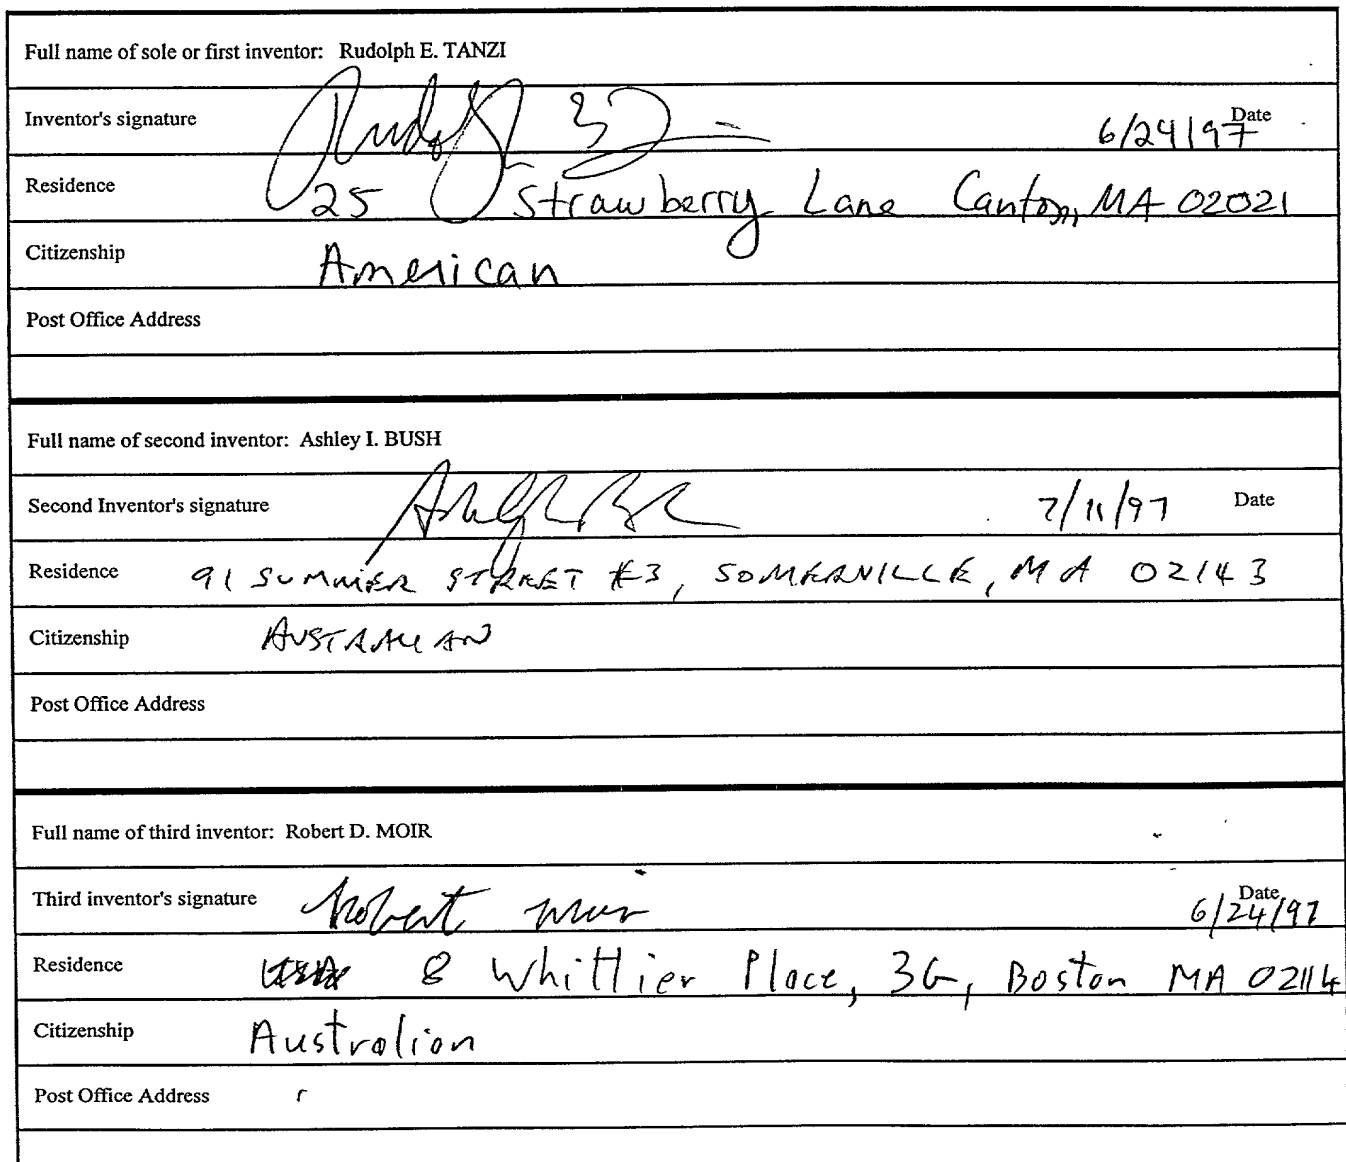 Full name of sole or first inventor: Rudolph E. TANZI
Inventor's signature Rudolph E 6/24/97 Date
Residence 25 Strawberry Lane Canton, MA 02021
Citizenship American
Post Office Address
Full name of second inventor: Ashley I. BUSH
Second Inventor's signature Ashley Bush 7/11/97 Date
Residence 91 SUMMER STREET #3, SOMERVILLE, MA 02143
Citizenship AUSTRALIAN
Post Office Address
Full name of third inventor: Robert D. MOIR
Third inventor's signature Robert Moir 6/24/97 Date
Residence 8 Whittier Place, 3G, Boston MA 02114
Citizenship Australian
Post Office Address